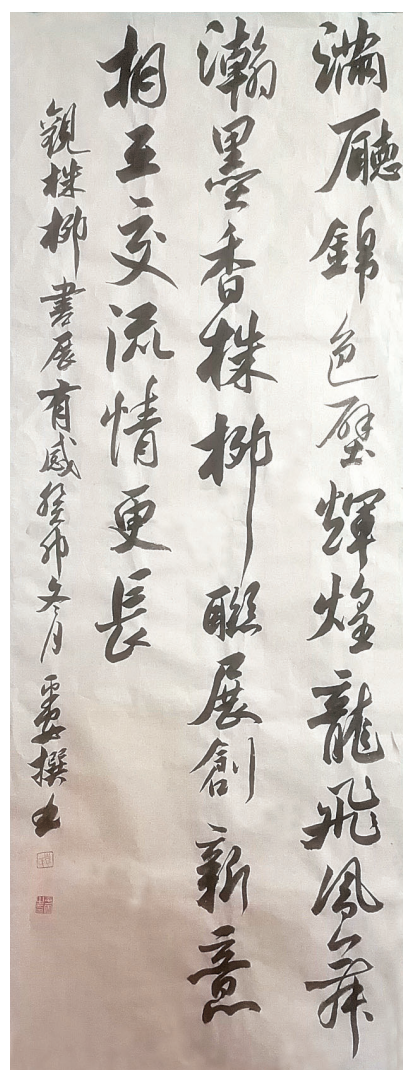 滿廳錦色壁輝煌龍飛鳳舞
瀚墨香株柳聯展創新意
相互交流情更長
觀株柳書展有感癸卯冬月 撰書